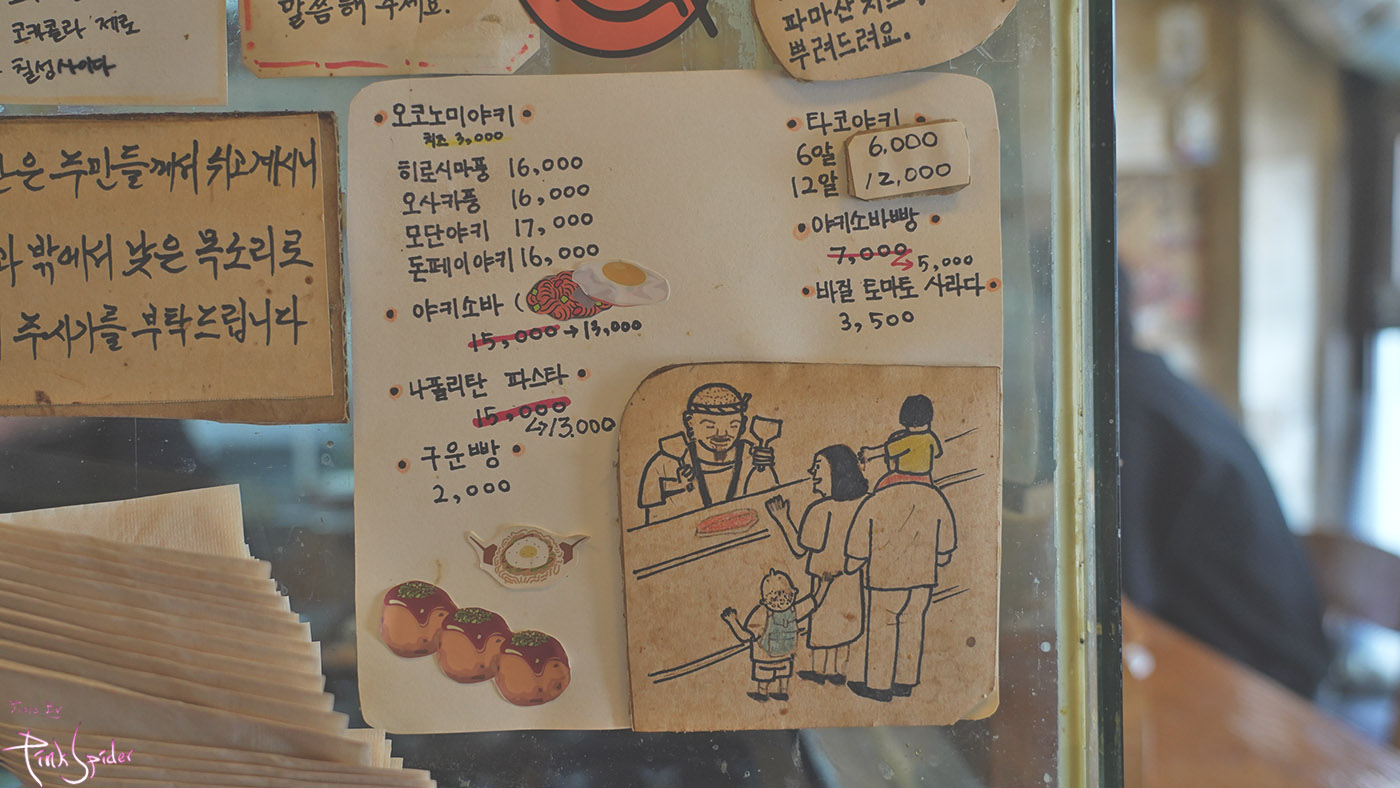 코카콜라 제로
칠성사이다
말씀해 주세요.
파마산
뿌려드려요.
은 주민들께서 쉬고계시니
밖에서 낮은 목소리로
주시기를 부탁드립니다
• 오코노미야키 •
치즈 3,000
히로시마풍 16,000
오사카풍 16,000
모단야키 17,000
돈페이야키 16,000
• 야키소바 (
15,000 → 13,000
• 나폴리탄 파스타 •
15,000
↳13,000
• 구운빵 •
2,000
• 타코야키 •
6알 6,000
12알 12,000
• 야키소바빵 •
7,000
↳ 5,000
• 바질 토마토 사라다 •
3,500
Pink Spider